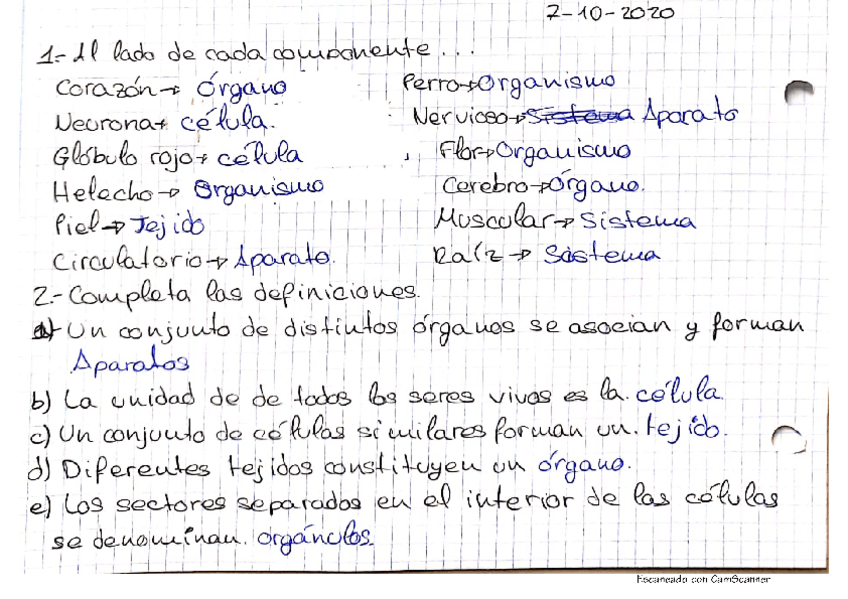 7-10-2020
1- Al lado de cada componente...
Corazón→ Órgano
Perro→Organismo
Neurona→ célula.
Nervioso→Sistema Aparato
Glóbulo rojo→ célula
Flor→Organismo
Helecho→ Organismo
Cerebro→Órgano.
Piel→Tejido
Muscular→Sistema
Circulatorio→Aparato.
Raíz→ Sistema
2.- Completa las definiciones.
a) Un conjunto de distintos órganos se asocian y forman
Aparatos
b) La unidad de de todos los seres vivos es la. célula.
c) Un conjunto de células similares forman un. tejido.
d) Diferentes tejidos constituyen un órgano.
e) Los sectores separados en el interior de las células
se denominan. orgánulos.
Escaneado con CamScanner